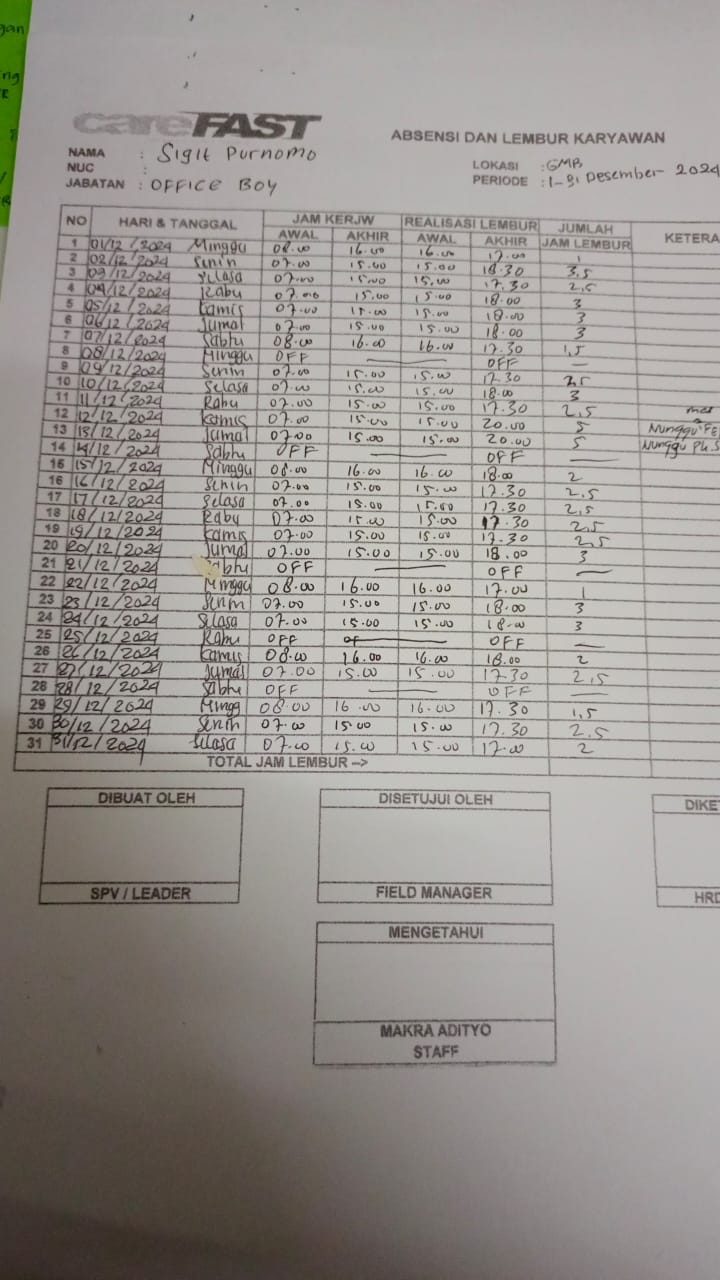 gan
ng
careFAST
ABSENSI DAN LEMBUR KARYAWAN
NAMA : Sigit Purnomo
NUC :
JABATAN : OFFICE BOY
LOKASI : GMB
PERIODE : 1-31 Desember 2024
NO HARI & TANGGAL JAM KERJW REALISASI LEMBUR JUMLAH JAM LEMBUR KETERA
AWAL AKHIR AWAL AKHIR
1 01/12/2024 Minggu 08.00 16.00 16.00 17.00 1
2 02/12/2024 Senin 07.00 15.00 15.00 18.30 3,5
3 03/12/2024 Selasa 07.00 15.00 15.00 17.30 2,5
4 04/12/2024 Rabu 07.00 15.00 15.00 18.00 3
5 05/12/2024 Kamis 07.00 15.00 15.00 18.00 3
6 06/12/2024 Jumat 07.00 15.00 15.00 18.00 3
7 07/12/2024 Sabtu 08.00 16.00 16.00 17.30 1,5
8 08/12/2024 Minggu OFF — OFF —
9 09/12/2024 Senin 07.00 15.00 15.00 17.30 2,5
10 10/12/2024 Selasa 07.00 15.00 15.00 18.00 3
11 11/12/2024 Rabu 07.00 15.00 15.00 17.30 2,5
12 12/12/2024 Kamis 07.00 15.00 15.00 20.00 5 Nunggu
13 13/12/2024 Jumat 07.00 15.00 15.00 20.00 5 Nunggu
14 14/12/2024 Sabtu OFF — OFF —
15 15/12/2024 Minggu 08.00 16.00 16.00 18.00 2
16 16/12/2024 Senin 07.00 15.00 15.00 17.30 2,5
17 17/12/2024 Selasa 07.00 15.00 15.00 17.30 2,5
18 18/12/2024 Rabu 07.00 15.00 15.00 17.30 2,5
19 19/12/2024 Kamis 07.00 15.00 15.00 17.30 2,5
20 20/12/2024 Jumat 07.00 15.00 15.00 18.00 3
21 21/12/2024 Sabtu OFF — OFF —
22 22/12/2024 Minggu 08.00 16.00 16.00 17.00 1
23 23/12/2024 Senin 07.00 15.00 15.00 18.00 3
24 24/12/2024 Selasa 07.00 15.00 15.00 18.00 3
25 25/12/2024 Rabu OFF — OFF —
26 26/12/2024 Kamis 08.00 16.00 16.00 18.00 2
27 27/12/2024 Jumat 07.00 15.00 15.00 17.30 2,5
28 28/12/2024 Sabtu OFF — OFF —
29 29/12/2024 Mingg 08.00 16.00 16.00 17.30 1,5
30 30/12/2024 Senin 07.00 15.00 15.00 17.30 2,5
31 31/12/2024 Selasa 07.00 15.00 15.00 17.00 2
TOTAL JAM LEMBUR -->
DIBUAT OLEH DISETUJUI OLEH DIKE
SPV / LEADER FIELD MANAGER HRD
MENGETAHUI
MAKRA ADITYO
STAFF